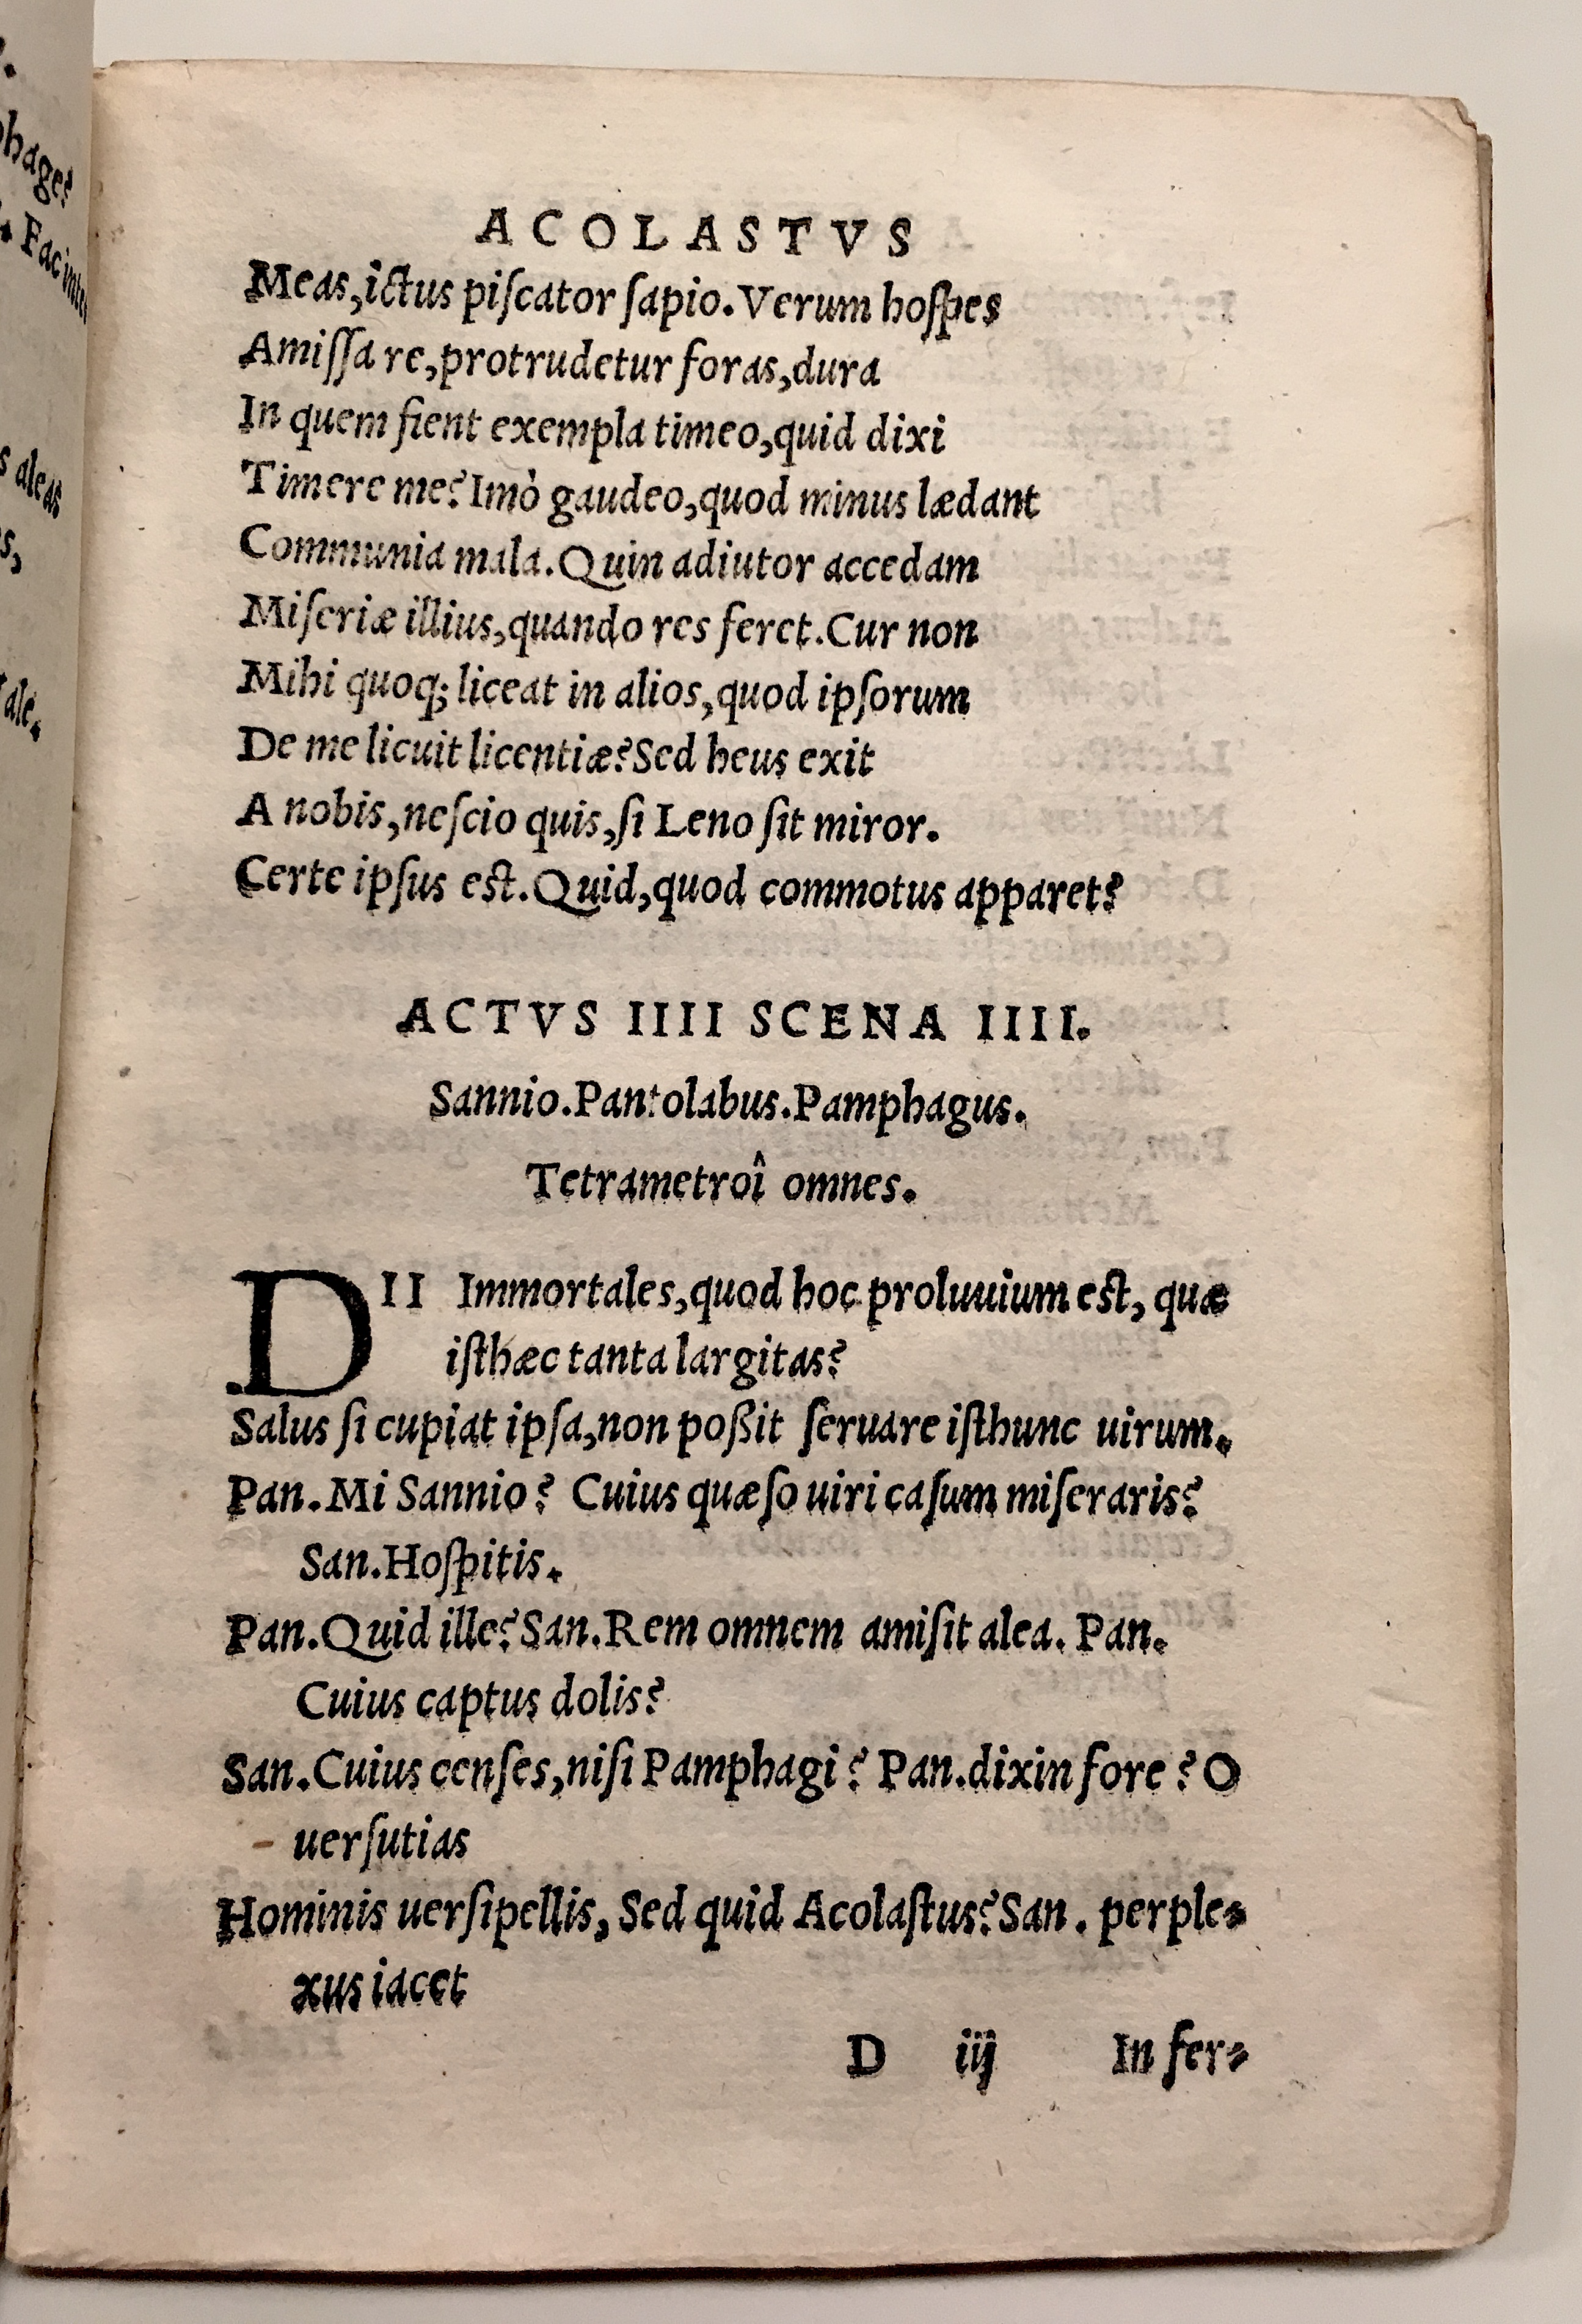 phage?
Fac inter
s aleas
s,
ale.
ACOLASTVS
Meas,ictus piſcator ſapio.Verum hoſpes
Amiſſa re,protrudetur foras,dura
In quem fient exempla timeo,quid dixi
Timere me? Imò gaudeo,quod minus lædant
Communia mala.Quin adiutor accedam
Miſeriæ illius,quando res feret.Cur non
Mihi quoq; liceat in alios,quod ipſorum
De me licuit licentiæ?Sed heus exit
A nobis,neſcio quis,ſi Leno ſit miror.
Certe ipſus eſt.Quid,quod commotus apparet?
ACTVS IIII SCENA IIII.
Sannio.Pantolabus.Pamphagus.
Tetrametroî omnes.
DII Immortales,quod hoc proluuium eſt, quæ
iſthæc tanta largitas?
Salus ſi cupiat ipſa,non poßit ſeruare iſthunc uirum.
Pan.Mi Sannio? Cuius quæſo uiri caſum miſeraris?
San.Hoſpitis.
Pan.Quid ille?San.Rem omnem amiſit alea. Pan.
Cuius captus dolis?
San.Cuius cenſes,niſi Pamphagi? Pan.dixin fore? O
uerſutias
Hominis uerſipellis, Sed quid Acolaſtus?San. perple-
xus iacet
D iij In fer-